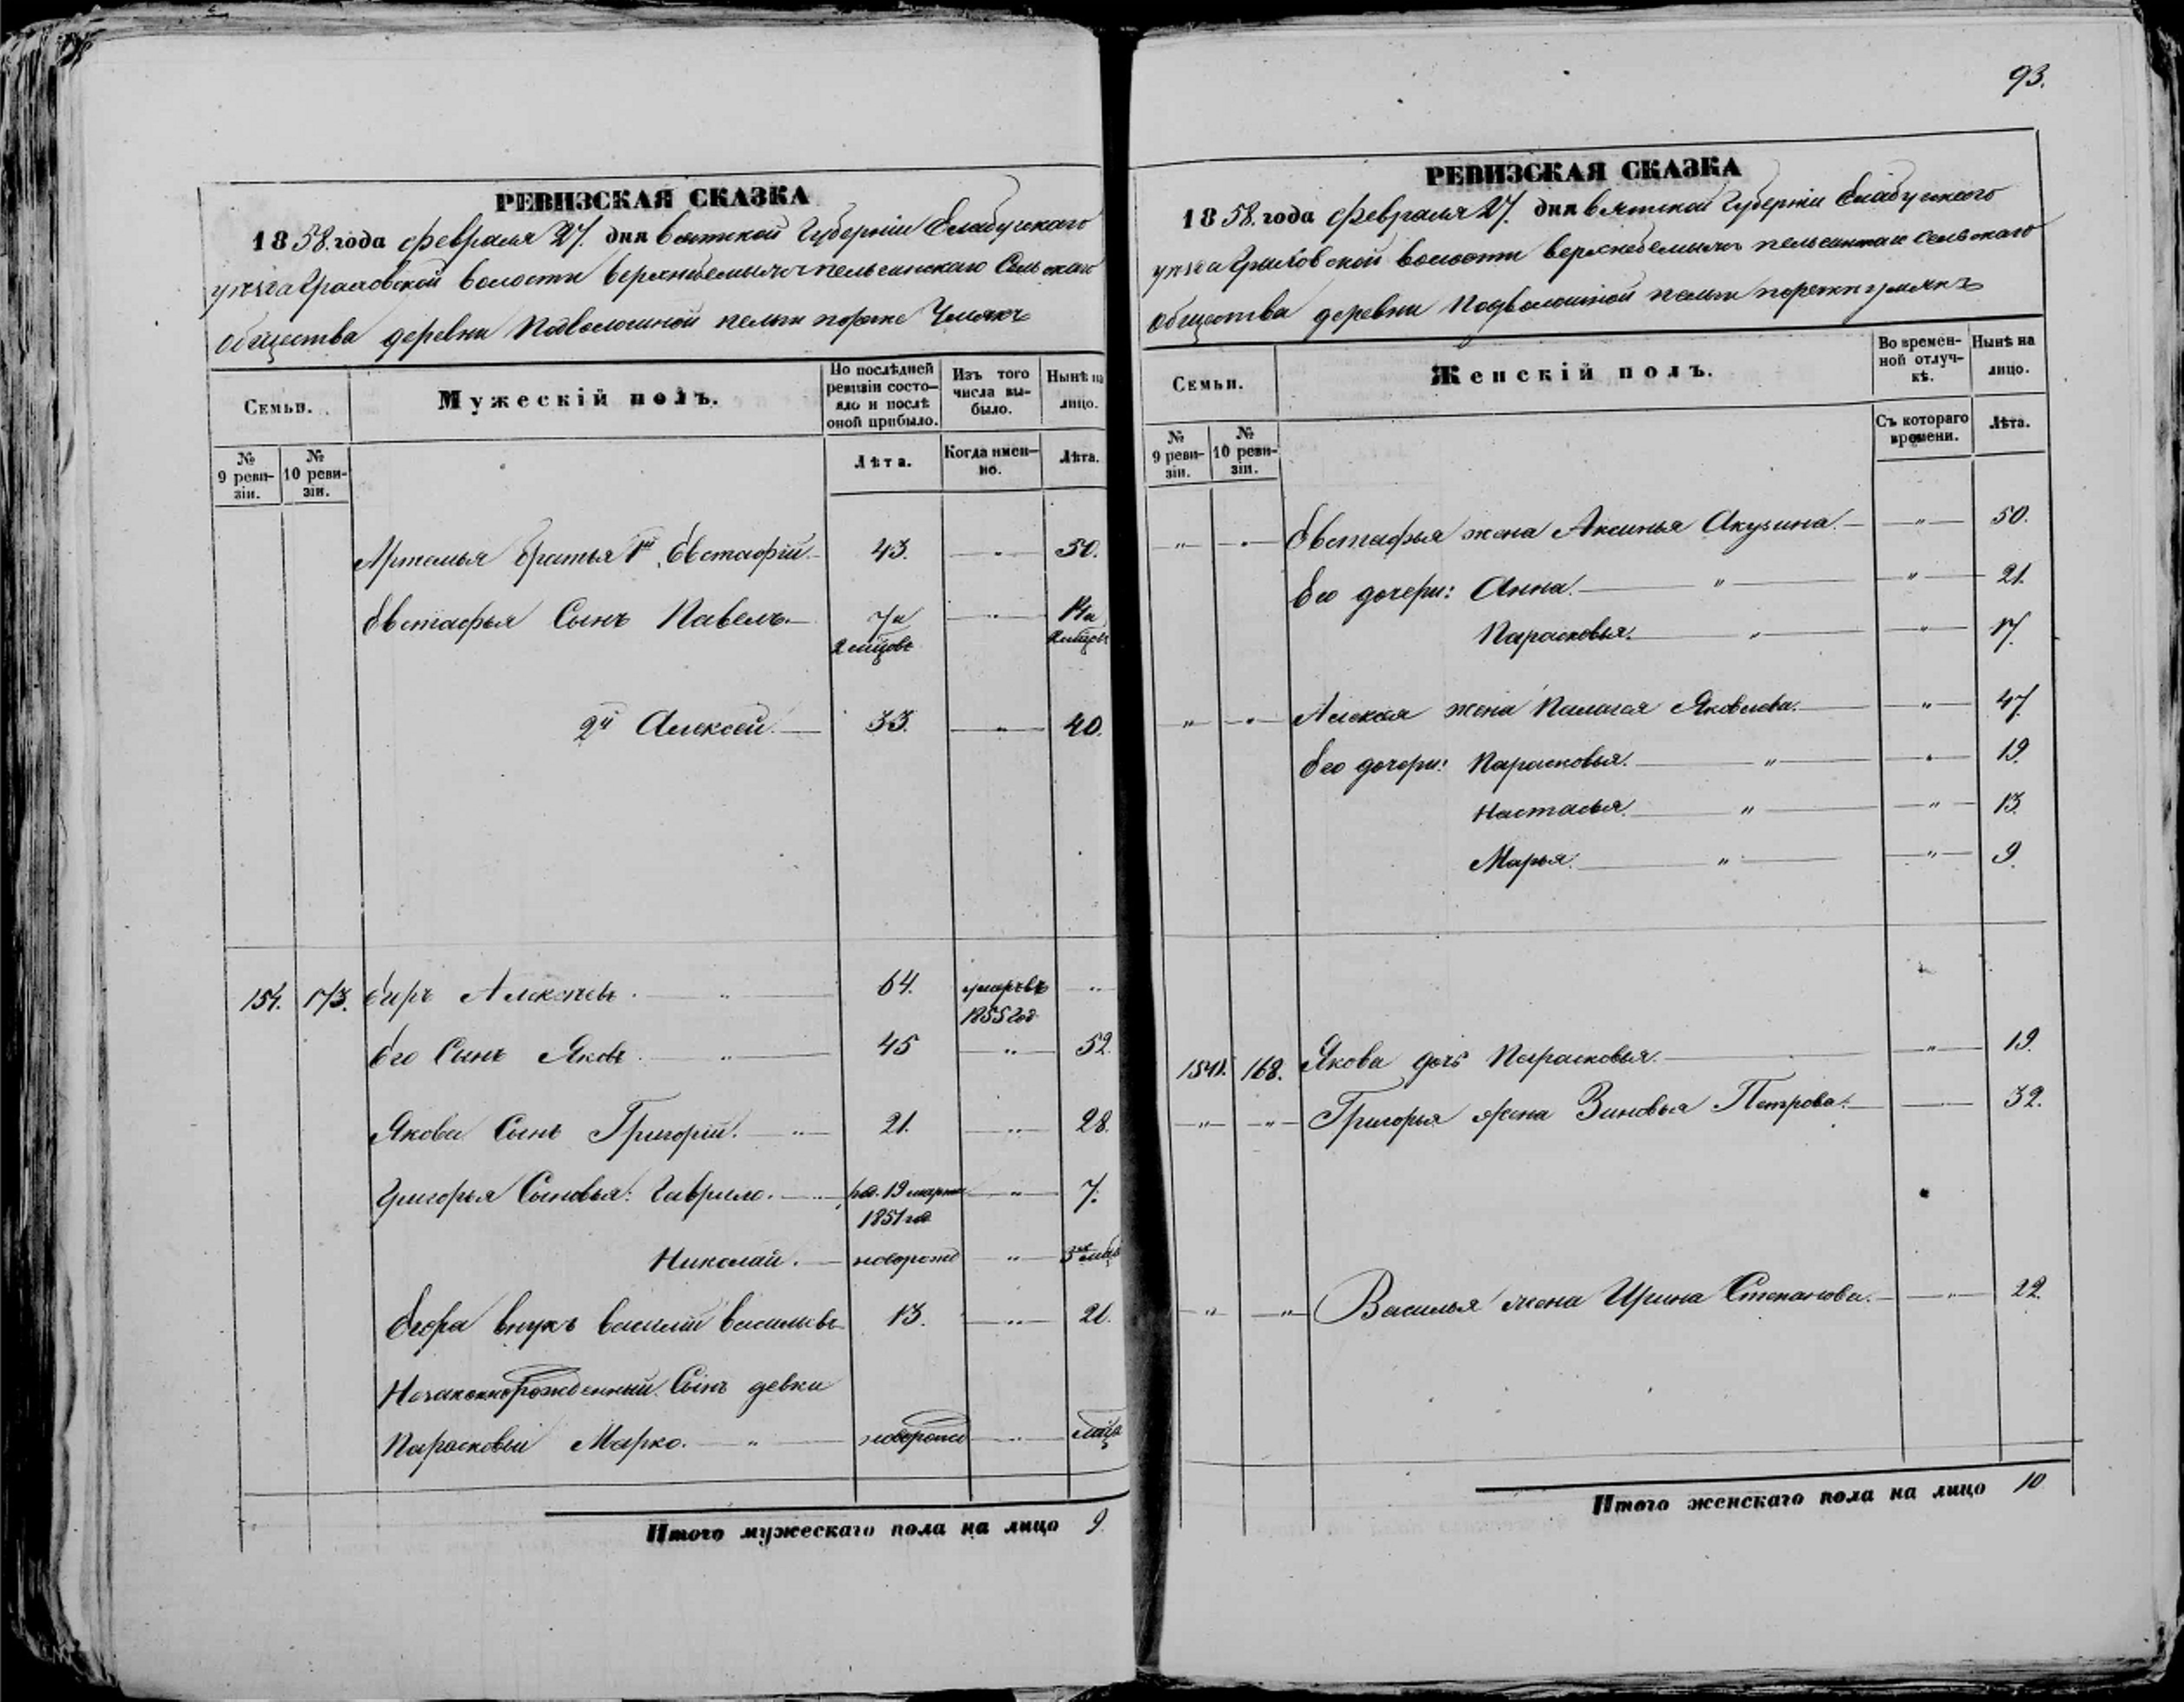 РЕВИЗСКАЯ СКАЗКА
1858. года февраля 27. дня Вятской Губерніи Елабужскаго
уезда Граховской волости Сельскаго
общества деревни Подволошной пельги
Семьи.
Мужескій полъ.
По послѣдней ревизіи состояло и послѣ оной прибыло.
Изъ того числа выбыло.
Нынѣ на лицо.
№ 9 ревизіи.
№ 10 ревизіи.
Лѣта.
Когда именно.
Лѣта.
Артемья братья 1й, Евстафій. 43. " 50.
Евстафья Сынъ Павелъ. 7 и " 14 и
2 мцовъ
2й Алексей. 33. " 40.
154. 173. Егоръ Алексеевъ. " 64. умеръ въ "
1855 год
Его Сынъ Яковъ. " 45 " 52.
Якова Сынъ Григорій. " 21. " 28.
Григорья Сыновья: Гаврило. " ро. 19 марта " 7.
1851 год
Николай. новорожд "
Егора внукъ Василій Васильевъ 13. "
Незаконнорожденный Сынъ девки
Парасковьи Марко. " новорожд "
Итого мужескаго пола на лицо 9.
93.
РЕВИЗСКАЯ СКАЗКА
1858. года февраля 27. дня Вятской Губерніи Елабужскаго
уезда Граховской волости Сельскаго
общества деревни Подволошной пельги
Семьи.
Женскій полъ.
Во временной отлучкѣ.
Нынѣ на лицо.
№ 9 ревизіи.
№ 10 ревизіи.
Съ котораго времени.
Лѣта.
" " Евстафья жена Аксинья " 50.
Его дочери: Анна. " " 21.
Парасковья. " " 17.
" " Алексея жена Палагея Яковлева. " 47.
Его дочери: Парасковья. " " 19.
Настасья. " " 13.
Марья. " " 9.
154. 168. Якова дочь Парасковья. " 19.
" " Григорья жена Зиновья Петрова. 32.
" " Василья жена Ирина Степанова. " 22.
Итого женскаго пола на лицо 10